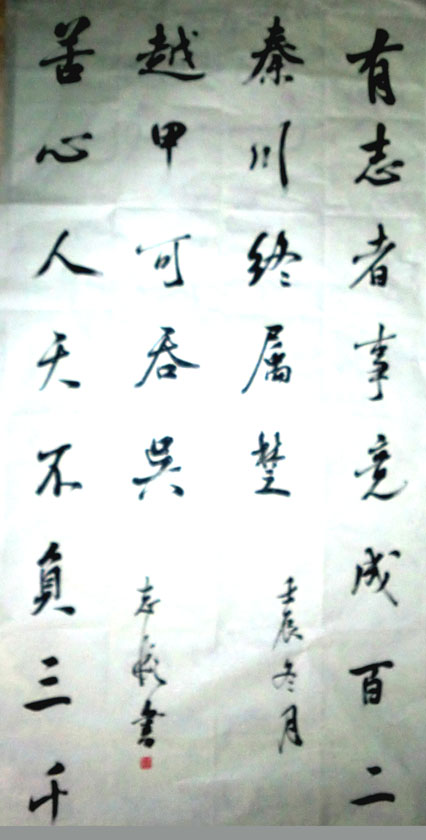 有志者事竟成百二
秦川終属楚
壬辰冬月
苦心人天不負三千
越甲可吞吳
志 書